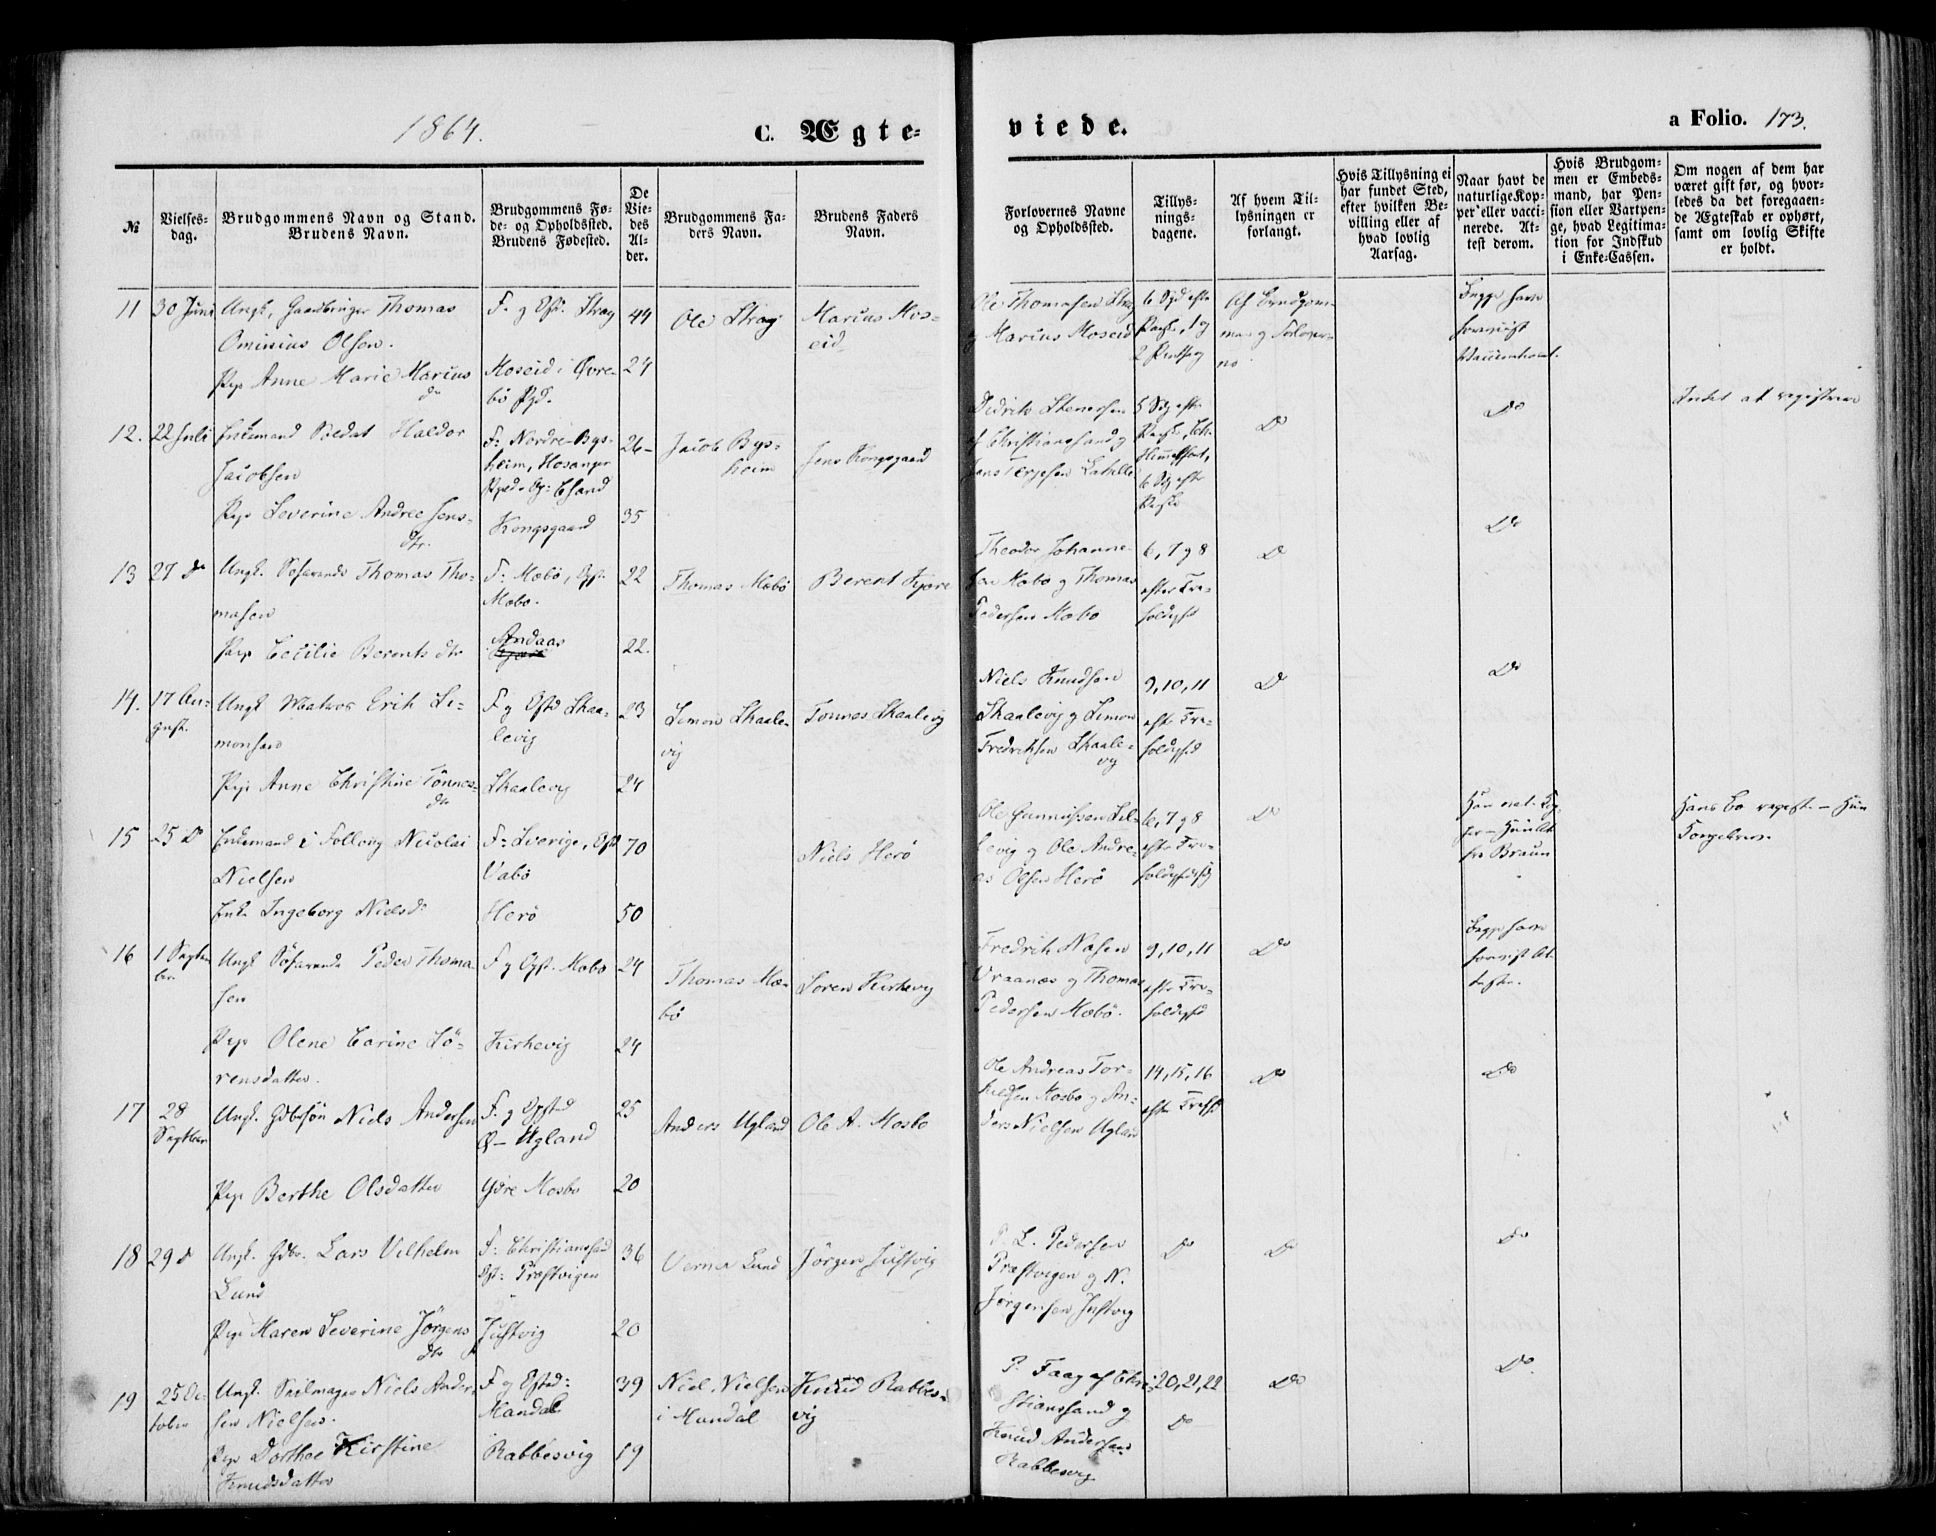 1864.
C. Ægte-
viede.
a Folio. 173.
№
Vielses-
dag.
Brudgommens Navn og Stand.
Brudens Navn.
Brudgommens Fø-
de- og Opholdssted.
Brudens Fødested.
De
Vie-
des
Al-
der.
Brudgommens Fa-
ders Navn.
Brudens Faders
Navn.
Forlovernes Navne
og Opholdssted.
Tillys-
nings-
dagene.
Af hvem Til-
lysningen er
forlangt.
Hvis Tillysning ei
har fundet Sted,
efter hvilken Be-
villing eller af
hvad lovlig
Aarsag.
Naar havt de
naturlige Kop-
per eller vacci-
nerede. At-
test derom.
Hvis Brudgom-
men er Embeds-
mand, har Pen-
sion eller Vartpen-
ge, hvad Legitima-
tion for Indskud
i Enke-Cassen.
Om nogen af dem har
været gift før, og hvor-
ledes da det foregaaen-
de Ægteskab er ophørt,
samt om lovlig Skifte
er holdt.
11
30 Juni
Ungk. Gaardbruger Thomas
Ominius Olsen.
Pige Anne Marie Marius
dr
F. og Ofst. Strag
Moseid i Øvre-
bö Pgd.
44
24
Ole Strag
Marius Mos-
eid
Ole Thomasen Strag
og Marius Moseid
6 Sgd efter
Paaske, 1 og
2 Pintsedag
Af Brudgom-
men og Forlover-
ne
Begge have
foreviist
12.
22 Juli
Enkemand Soldat Haldor
Jacobsen
Pige Severine Andree Jens-
dtr.
F: Nordre-Bys-
heim, Hosanger
Pgd. Og: Chsand
Kongsgaard
26-
35
Jacob Bys-
heim
Jens Kongsgaard
Didrik Stenersen
af Christianssand og
Jens Terjesen
5 Sdg efter
Paaske, Ch.
Himmelfart,
6 Sdg efter
Paaske
Do
Do
Intet at registrere
13
27 do
Ungk. Søfarende Thomas Tho-
masen
Pige Cecilie Berents dtr
F: Mæbö, Ofst.
Mæbö.
Andaas
22
22.
Thomas Mæbö
Berent Kjære
Theodor Johanne-
sen Mæbö og Thomas
Pedersen Mæbö
6, 7 og 8
efter Tre-
foldighd
Do
Do
14.
17 Au-
gust.
Ungk Matros Erik Si-
monsen
Pige Anne Christine Tönnes-
dr
F og Ofst Skaa-
levig
Skaalevig
23
24
Simon Skaale-
vig
Tonnes Skaalevig
Niels Knudsen
Skaalevig og Simon
Fredriksen Skaale-
vig
9, 10, 11
efter Tre-
foldighd
Do
Do
15
25 do
Enkemand Nicolai
Nielsen
Enke Ingeborg Nielsdr
F: Sverige, Ofst
Vabö
Herö
70
50
Niels Herö
Ole Gunnufsen
og Ole Andre-
as Olsen Herö
6, 7 og 8
efter Tre-
Do
fra Braun
16
1 Septem-
ber
Ungk Söfarende Peder Thoma-
sen
Pige Olene Carine Sö-
rensdatter.
F og Ofst. Mæbö
Kirkevig
24
24
Thomas Mæ-
bö
Soren Kirkevig
Fredrik Næsen
Vraanæs og Thomas
Pedersen Mæbö.
9, 10, 11
efter Tre-
foldighd
Do
Begge have
foreviist At-
tester.
17
28
Septbr
Ungk. Gdbrsön Niels Andersen
Pige Berthe Olsdatter
F. og Ofsted
Ø- Ugland
Ydre Mosbö
25
20
Anders Ugland
Ole A. Mosbö
Ole Andreas Tor-
kelsen Mosbö og An-
ders Nielsen Ugland
14, 15, 16
efter Trefd
Do
Do
18
29 do
Ungk. Gdbr. Lars Vilhelm
Lund
Pige Maren Severine Jörgens
dtr
F: Christianssad
Ofst: Præstvigen
Justvig
36
20
Verner Lund
Jörgen Justvig
P. L. Pedersen
Præstvigen og N.
Jörgensen Justvig
Do
Do
Do
19
25 Oc-
tober
Ungk. Seilmager Niels Ander-
sen Nielsen.
Pige Dorthea Kirstine
Knudsdatter
F og Ofsted:
Mandal
Rabbesvig
39
19
Niel. Nielsen
i Mandal
Knud Rabbes-
vig
P. Faag af Chri-
stianssand og
Knud Andersen
Rabbesvig
20, 21, 22
Do
Do
Do